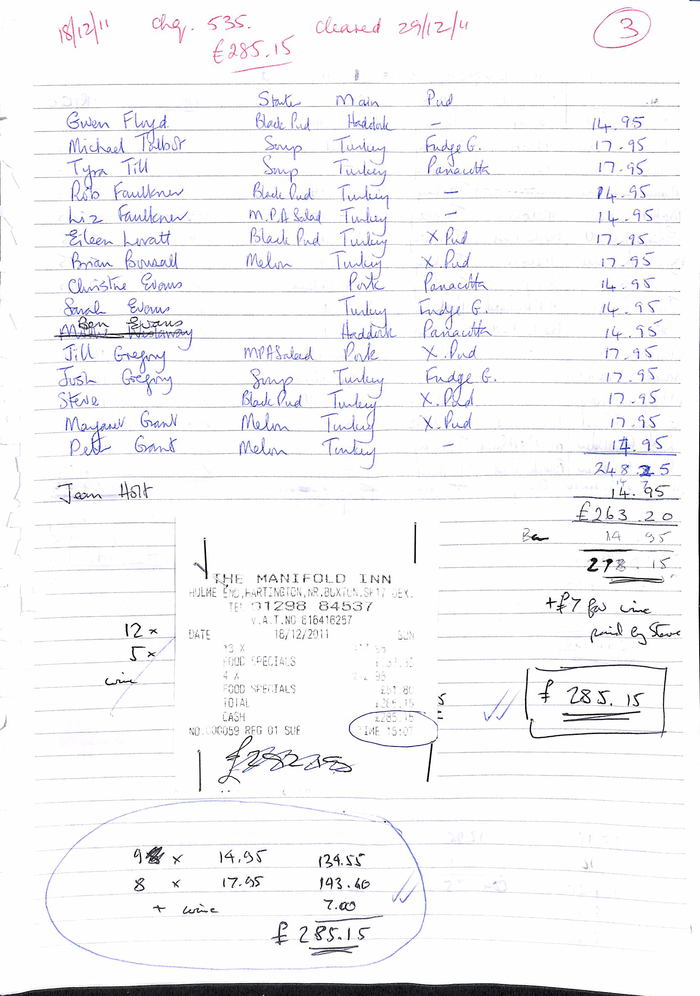 18/12/11 chq. 535. cleared 29/12/11 3
£285.15
Starter Main Pud
Gwen Floyd Black Pud Haddock — 14.95
Michael Talbot Soup Turkey Fudge G. 17.95
Tyra Till Soup Turkey Panacotta 17.95
Rob Faulkner Black Pud Turkey — 14.95
Liz Faulkner M.P.A Salad Turkey — 14.95
Eileen Lovatt Black Pud Turkey X Pud 17.95
Brian Bonsall Melon Turkey X.Pud 17.95
Christine Evans Pork Panacotta 14.95
Sarah Evans Turkey Fudge G. 14.95
Ben Evans Haddock Panacotta 14.95
Jill Gregory MPA Salad Pork X.Pud 17.95
Josh Gregory Soup Turkey Fudge G. 17.95
Steve Black Pud Turkey X.Pud 17.95
Margaret Grant Melon Turkey X.Pud 17.95
Pete Grant Melon Turkey — 14.95
248.25
Jean Holt 14.95
£263.20
Ben 14.95
278.15
+£7 for wine
paid by Steve
£ 285.15
THE MANIFOLD INN
HULME END, HARTINGTON, NR. BUXTON. SK17 0EX.
TEL 01298 84537
V.A.T. NO 616416257
DATE 18/12/2011 SUN
FOOD SPECIALS
4 X
FOOD SPECIALS £51.80
TOTAL
CASH £285.15
NO.000059 REG 01 SUE TIME 15:07
12 x
5 x
wine
9 x 14.95 134.55
8 x 17.95 143.60
+ wine 7.00
£ 285.15